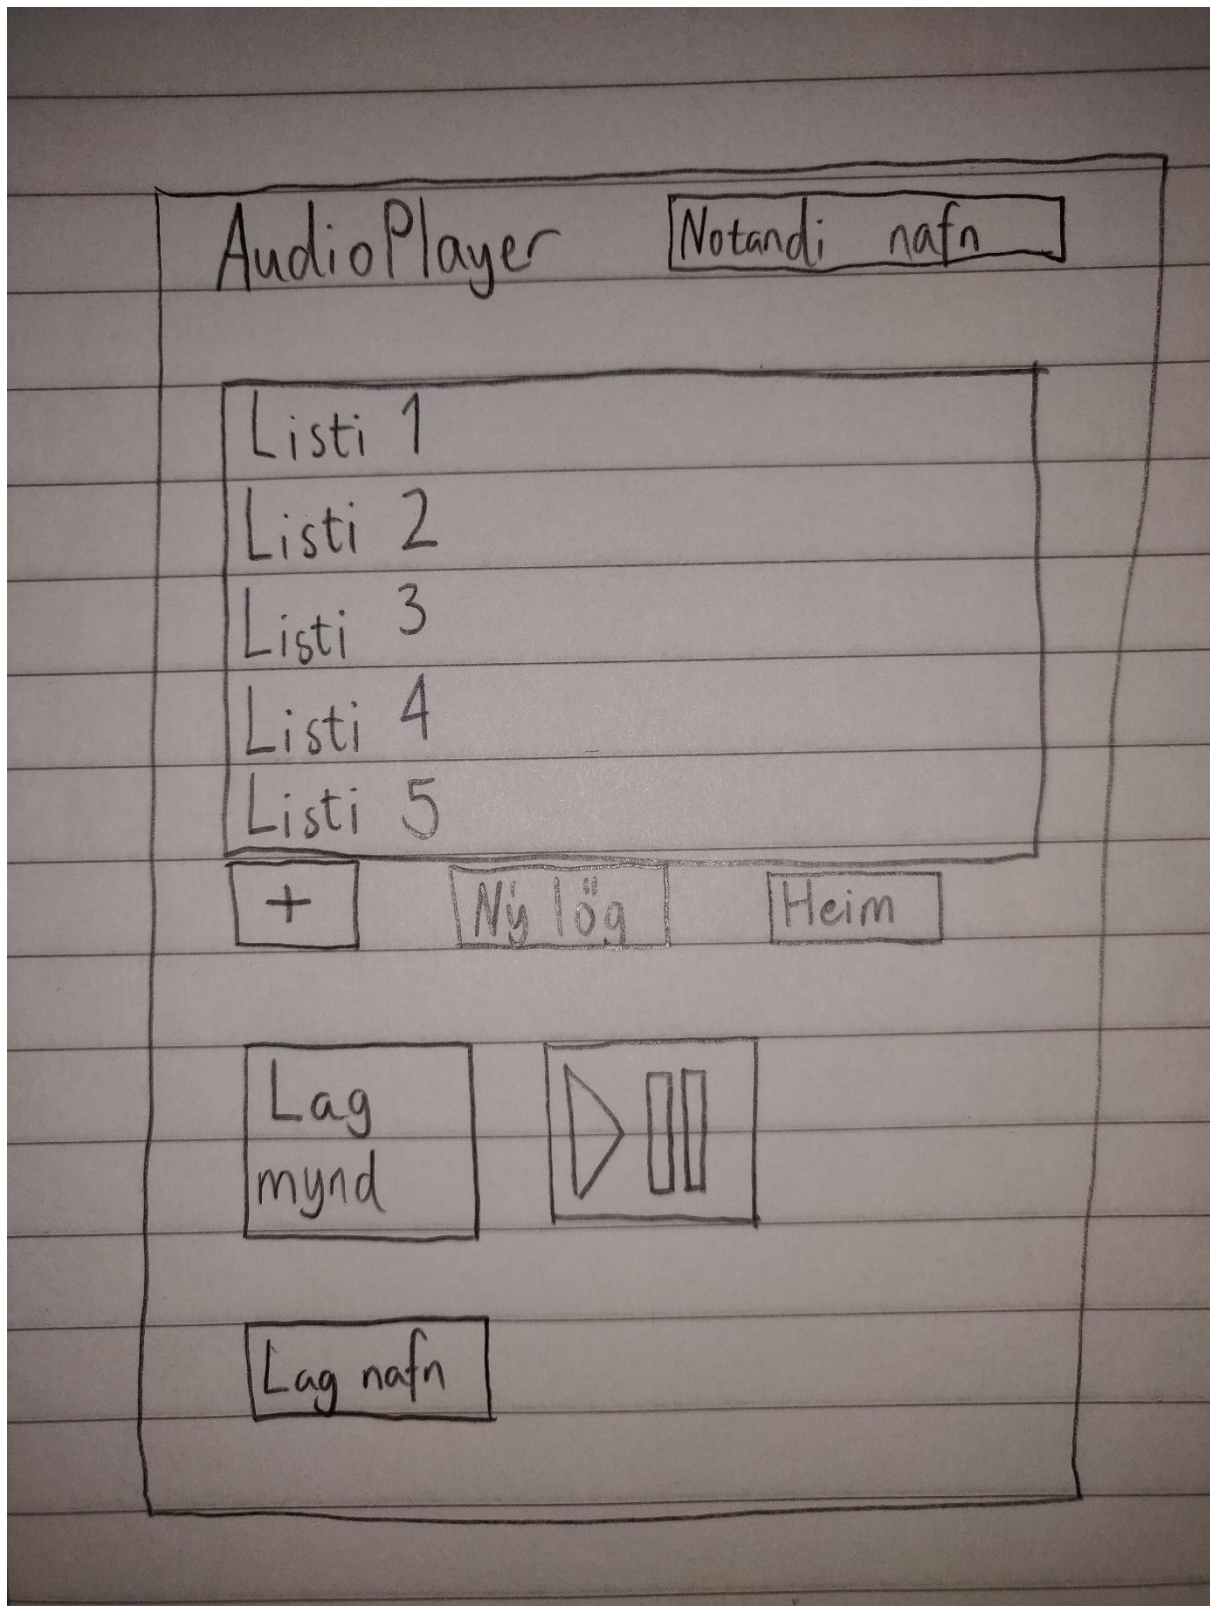 AudioPlayer
Notandi nafn
Listi 1
Listi 2
Listi 3
Listi 4
Listi 5
+
Ný lög
Heim
Lag
mynd
Lag nafn